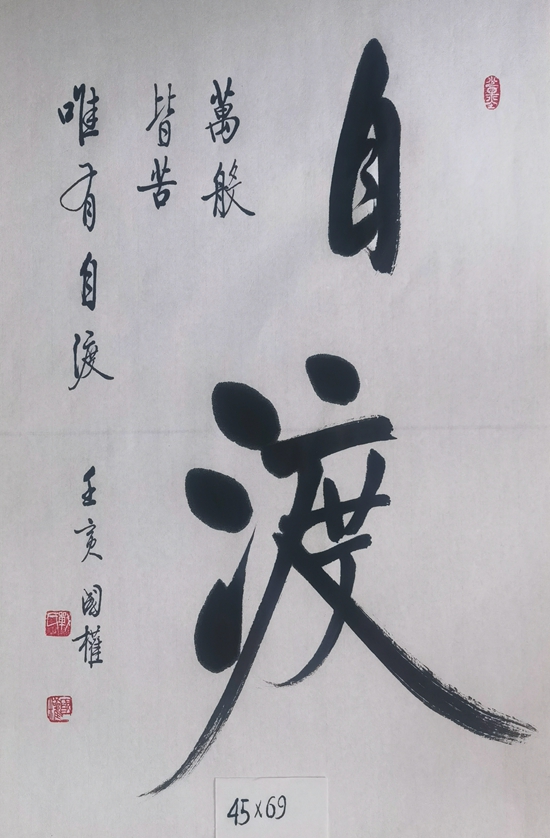 自渡
萬般
皆苦
唯有自渡
壬寅國權
45x69